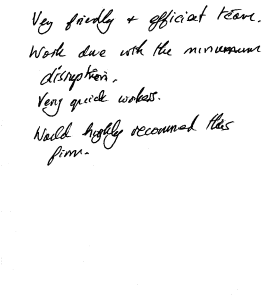 Very friendly + efficient team.
Work done with the minimum
disruption.
Very quick workers.
Would highly recommend this
firm.